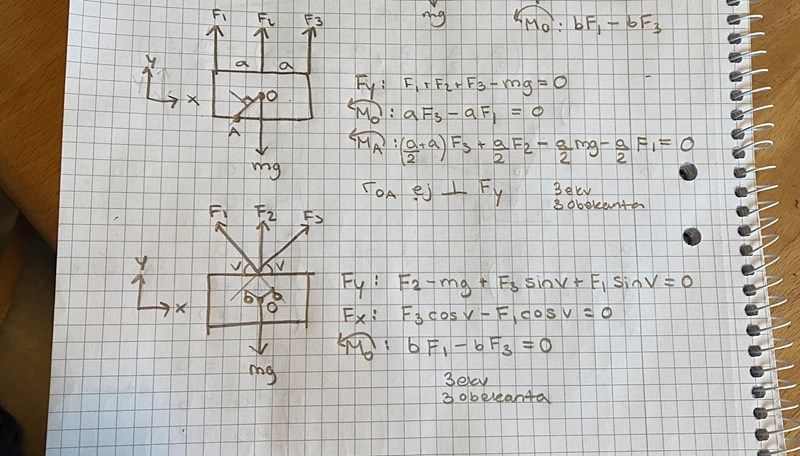 mg
M₀: bF₁ - bF₃
F₁ F₂ F₃
a a
y
x
O
A
mg
Fy: F₁ + F₂ + F₃ - mg = 0
M₀: aF₃ - aF₁ = 0
M_A: (a/2 + a) F₃ + a/2 F₂ - a/2 mg - a/2 F₁ = 0
r_OA ej ⊥ Fy
3 ekv
3 obekanta
F₁ F₂ F₃
v v
y
x
b b
O
mg
Fy: F₂ - mg + F₃ sin v + F₁ sin v = 0
Fx: F₃ cos v - F₁ cos v = 0
M₀: bF₁ - bF₃ = 0
3 ekv
3 obekanta